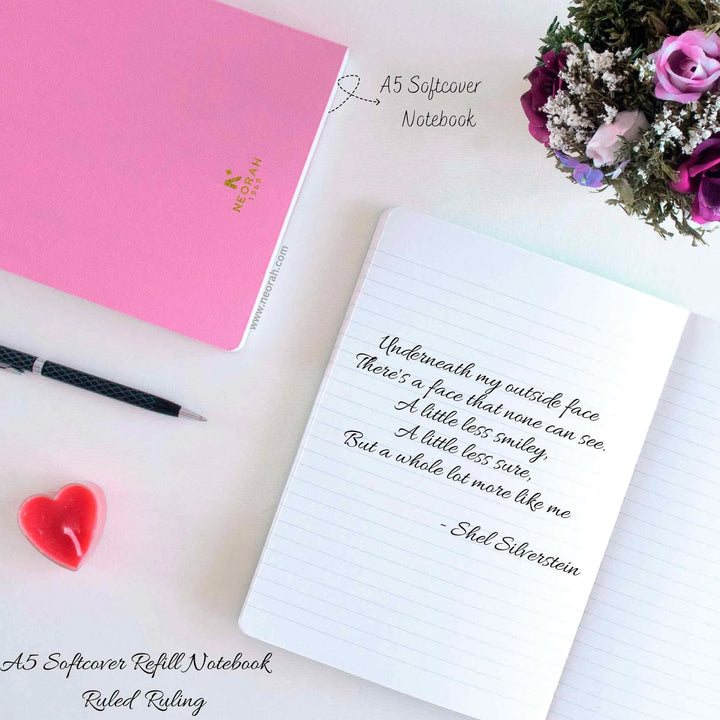 A5 Softcover
Notebook
NEORAH
1968
www.neorah.com
Underneath my outside face
There's a face that none can see.
A little less smiley,
A little less sure,
But a whole lot more like me
- Shel Silverstein
A5 Softcover Refill Notebook
Ruled Ruling